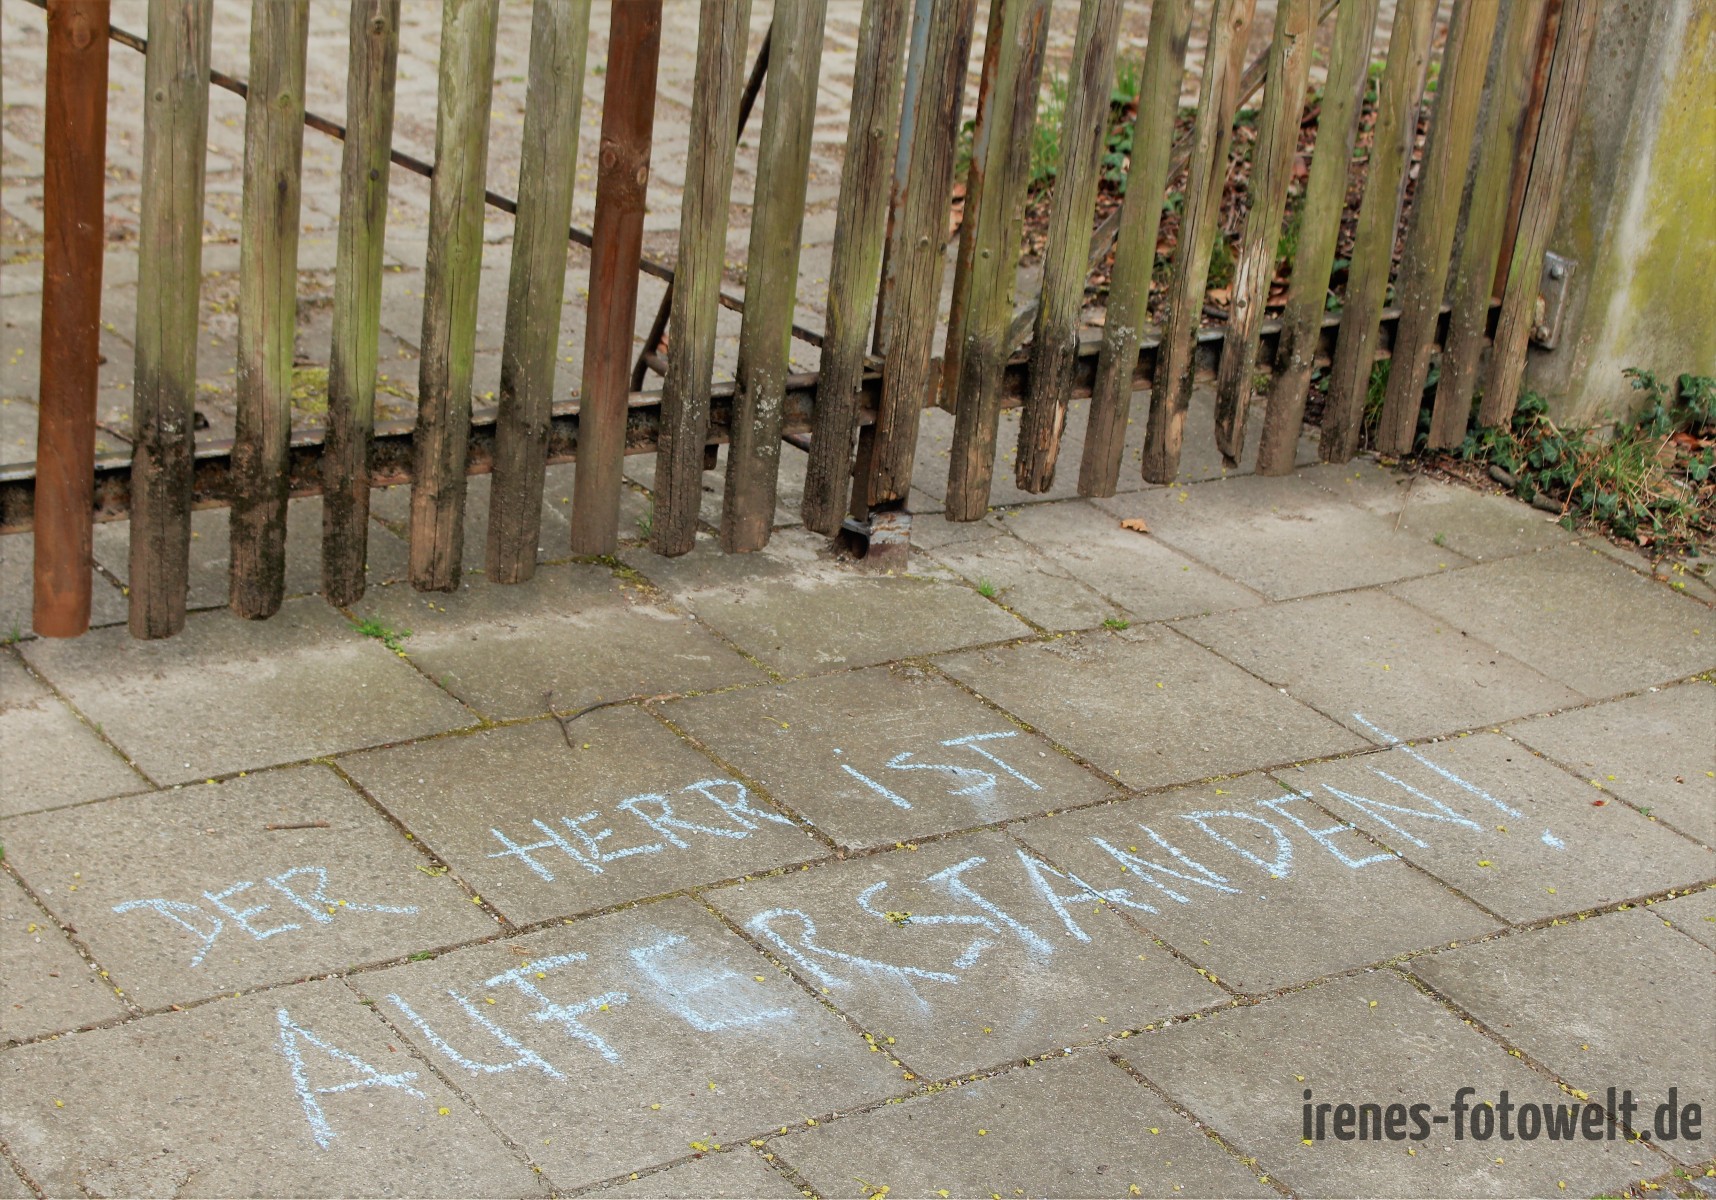 DER HERR iST
AUFERSTANDEN!
irenes-fotowelt.de